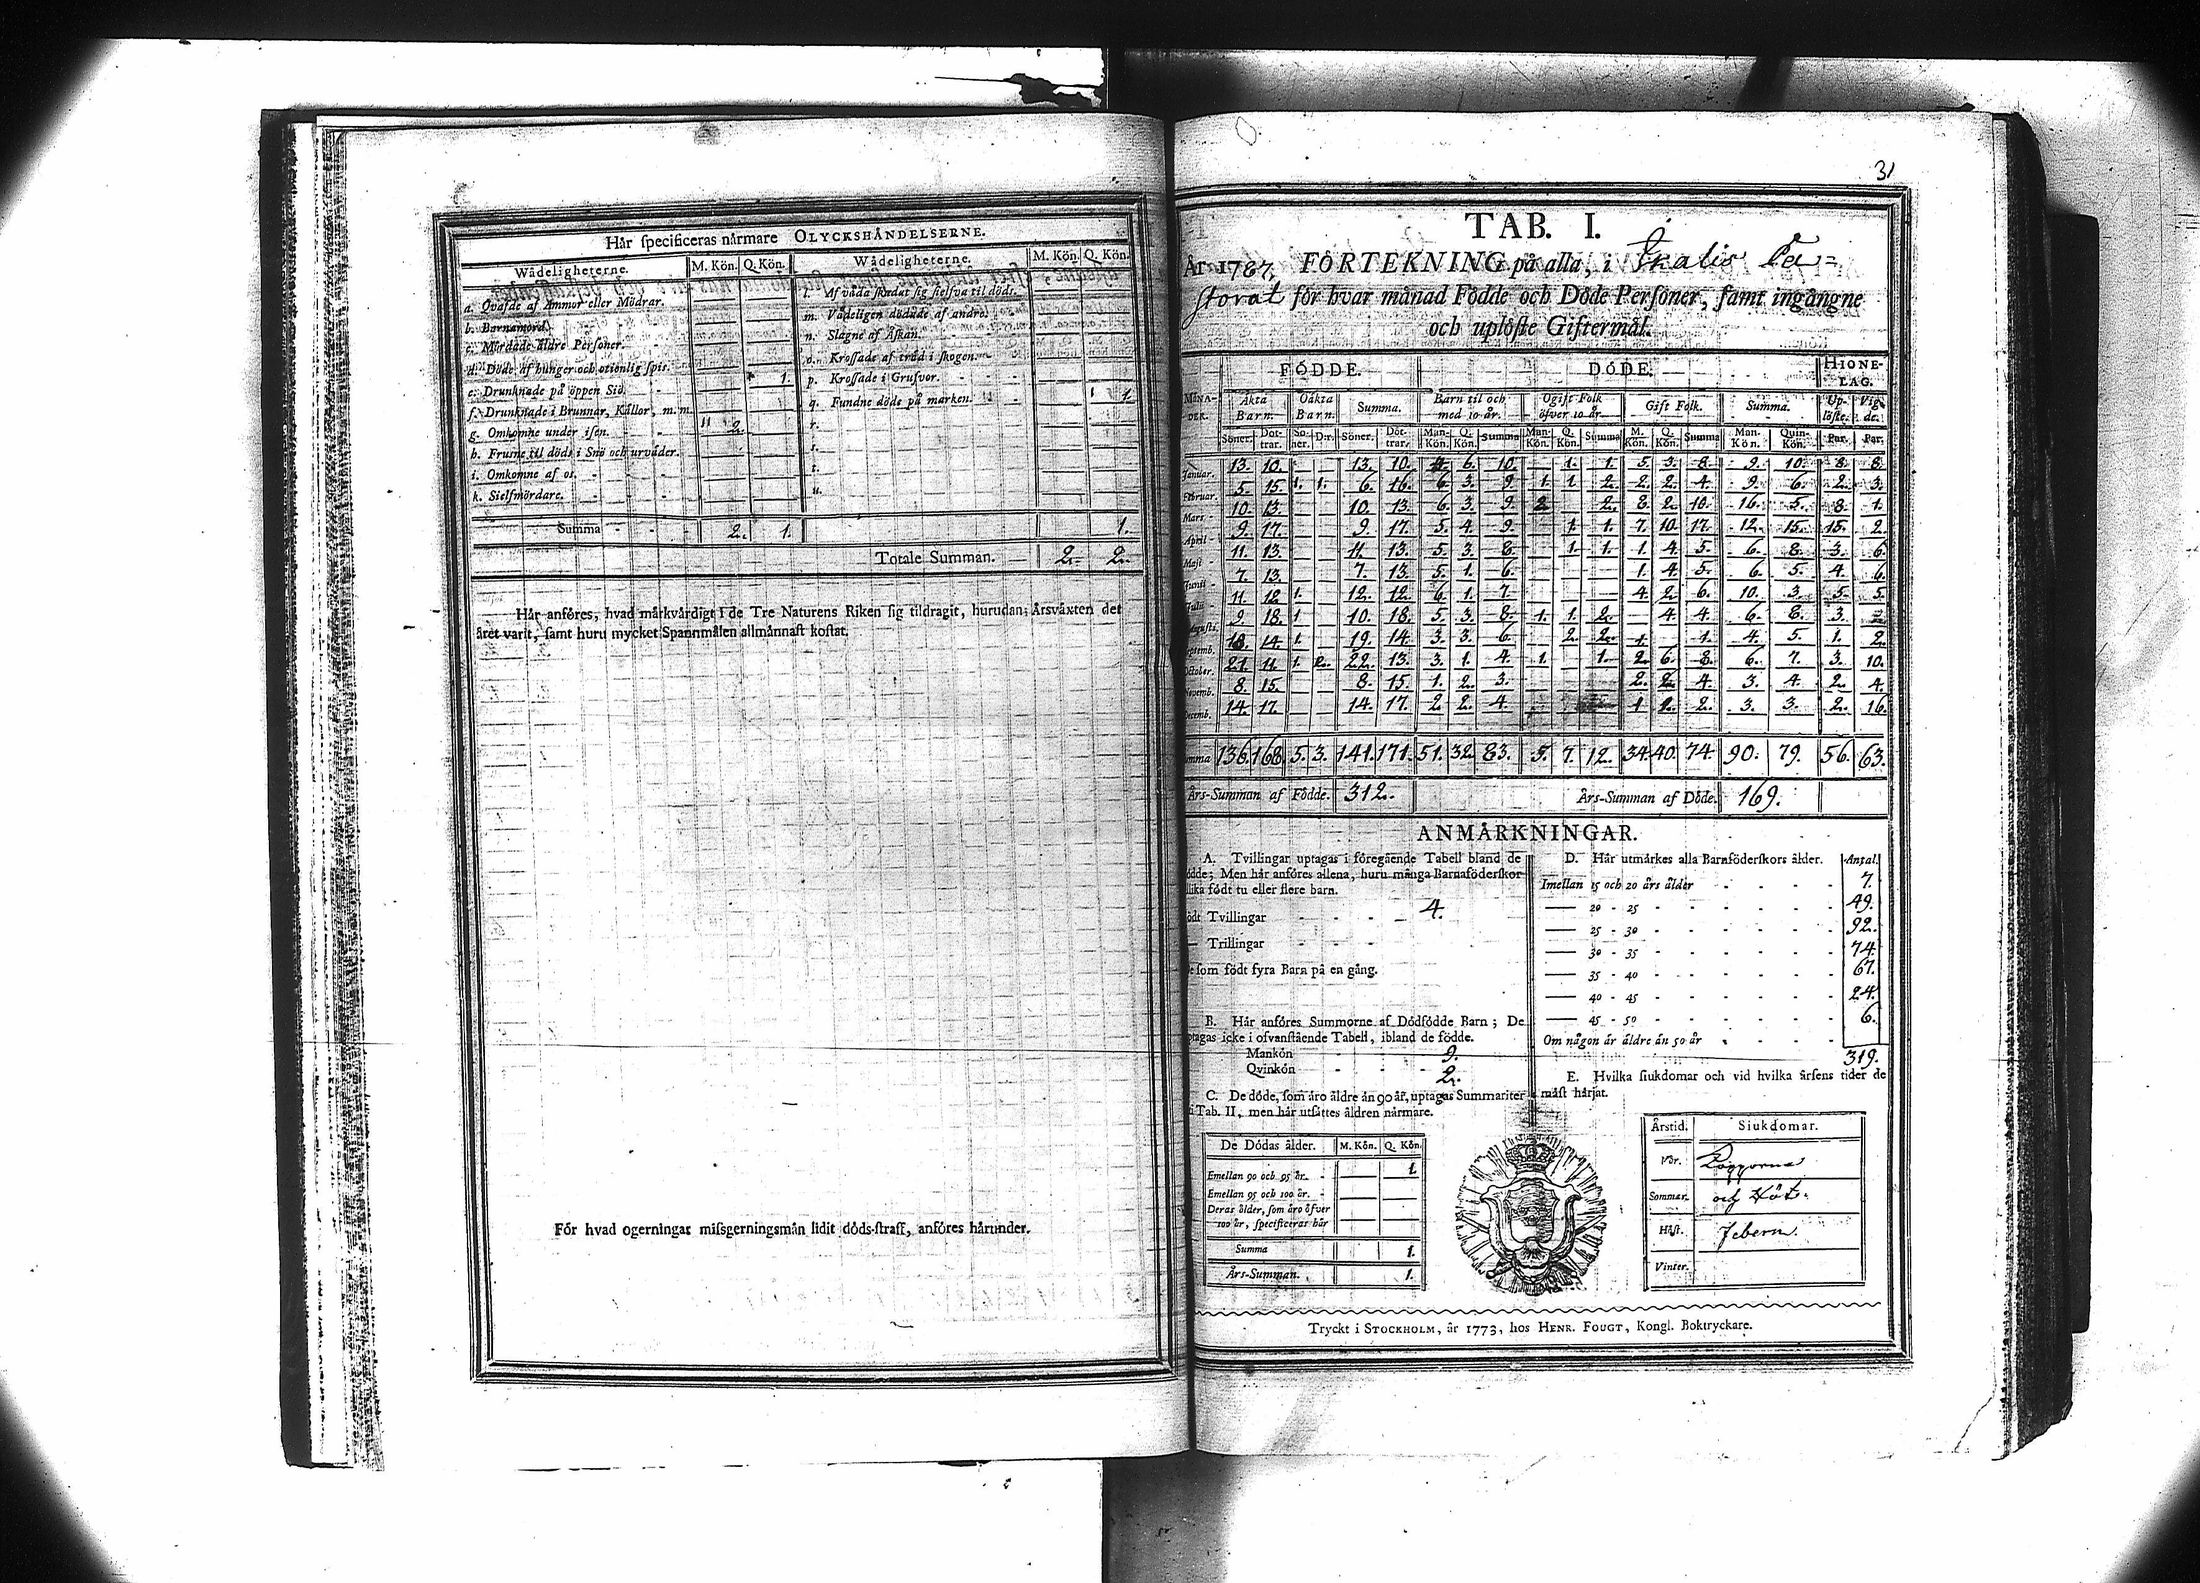 Hår specificeras nårmare OLYCKSHÅNDELSERNE.
Wådeligheterne. M. Kön. Q. Kön. Wådeligheterne. M. Kön. Q. Kön.
a. Qvafde af Ammor eller Mödrar. l. Af våda skudat sig sielfva til döds.
b. Barnamord. m. Vådeligen dödade af andra.
c. Mördade åldre Personer. n. Slagne af Åskan.
d. Döde af hunger och otienlig spis. o. Krossade af tråd i skogen.
e. Drunknade på öppen Siö. 1. p. Krossade i Grufvor.
f. Drunknade i Brunnar, Kållor, m.m. q. Fundne döde på marken. 1.
g. Omkomne under isen. 2. r.
h. Frusne til döds i Snö och urvåder. s.
i. Omkomne af os. t.
k. Sielfmördare. u.
Summa 2. 1. 1.
Totale Summan. 2. 2.
Hår anföres, hvad mårkvårdigt i de Tre Naturens Riken sig tildragit, hurudan Årsvåxten det
året varit, samt huru mycket Spannmålen allmånnast kostat.
För hvad ogerningar missgerningsmån lidit döds-straff, anföres hårunder.
31
TAB. I.
År 1787, FÖRTEKNING på alla, i Skatis Pa=
storat för hvar månad Födde och Döde Personer, samt ingångne
och uplöste Giftermål.
FÖDDE. DÖDE. HIONE-
LAG.
MÅNA-
DER. Åkta
Barn. Oåkta
Barn. Summa. Barn til och
med 10 år. Ogift Folk
öfver 10 år. Gift Folk. Summa. Up-
löste. Vig-
de.
Söner. Döt-
trar. So-
ner. D:r. Söner. Döt-
trar. Man-
Kön. Q.
Kön. Summa Man-
Kön. Q.
Kön. Summa M.
Kön. Q.
Kön. Summa Man-
Kön. Quin-
Kön. Par. Par.
Januar. 13. 10. 13. 10. 4. 6. 10. 1. 1. 5. 3. 8. 9. 10. 8. 8.
Februar. 5. 15. 1. 1. 6. 16. 6. 3. 9. 1. 1. 2. 2. 2. 4. 9. 6. 2. 3.
Mars 10. 13. 10. 13. 6. 3. 9. 2. 2. 8. 2. 10. 16. 5. 8. 1.
April 9. 17. 9. 17. 5. 4. 9. 1. 1. 7. 10. 17. 12. 15. 15. 2.
Maji 11. 13. 11. 13. 5. 3. 8. 1. 1. 1. 4. 5. 6. 8. 3. 6.
Junii 7. 13. 7. 13. 5. 1. 6. 1. 4. 5. 6. 5. 4. 6.
Julii 11. 12. 1. 12. 12. 6. 1. 7. 4. 2. 6. 10. 3. 5. 5.
Augusti. 9. 18. 1 10. 18. 5. 3. 8. 1. 1. 2. 4. 4. 6. 8. 3.
Septemb. 18. 14. 1. 19. 14. 3. 3. 6. 2. 2. 1. 1. 4. 5. 1. 2.
October. 21. 11. 1. 2. 22. 13. 3. 1. 4. 1. 1. 2. 6. 8. 6. 7. 3. 10.
Novemb. 8. 15. 8. 15. 1. 2. 3. 2. 2. 4. 3. 4. 2. 4.
Decemb. 14. 17. 14. 17. 2 2. 4. 1 1. 2. 3. 3. 2. 16.
Summa 136. 168. 5. 3. 141. 171. 51. 32. 83. 5. 7. 12. 34. 40. 74. 90. 79. 56. 63.
Års-Summan af Födde. 312. Års-Summan af Döde. 169.
ANMÅRKNINGAR.
A. Tvillingar uptagas i föregående Tabell bland de
födde; Men hår anföres allena, huru många Barnaföderskor
lika födt tu eller flere barn.
födt Tvillingar 4.
— Trillingar
som födt fyra Barn på en gång.
B. Hår anföres Summorne af Dödfödde Barn; De
uptagas icke i ofvanstående Tabell, ibland de födde.
Mankön 9.
Qvinkön 2.
C. De döde, som åro åldre ån 90 år, uptagas Summariter
i Tab. II, men hår utsåttes åldren nårmare.
De Dödas ålder. M. Kön. Q. Kön.
Emellan 90 och 95 år. 1.
Emellan 95 och 100 år.
Deras ålder, som åro öfver
100 år, specificeras hår
Summa 1.
Års-Summan. 1.
D. Hår utmårkes alla Barnföderskors ålder. Antal.
Imellan 15 och 20 års ålder 7.
— 20 - 25 49.
— 25 - 30 92.
— 30 - 35 74.
— 35 - 40 67.
— 40 - 45 24.
— 45 - 50 6.
Om någon år åldre ån 50 år
319.
E. Hvilka siukdomar och vid hvilka årsens tider de
måst hårjat.
Årstid. Siukdomar.
Vår. Kopporna
Sommar. och Höt-
Höst. Febern.
Vinter.
Tryckt i STOCKHOLM, år 1773, hos HENR. FOUGT, Kongl. Boktryckare.